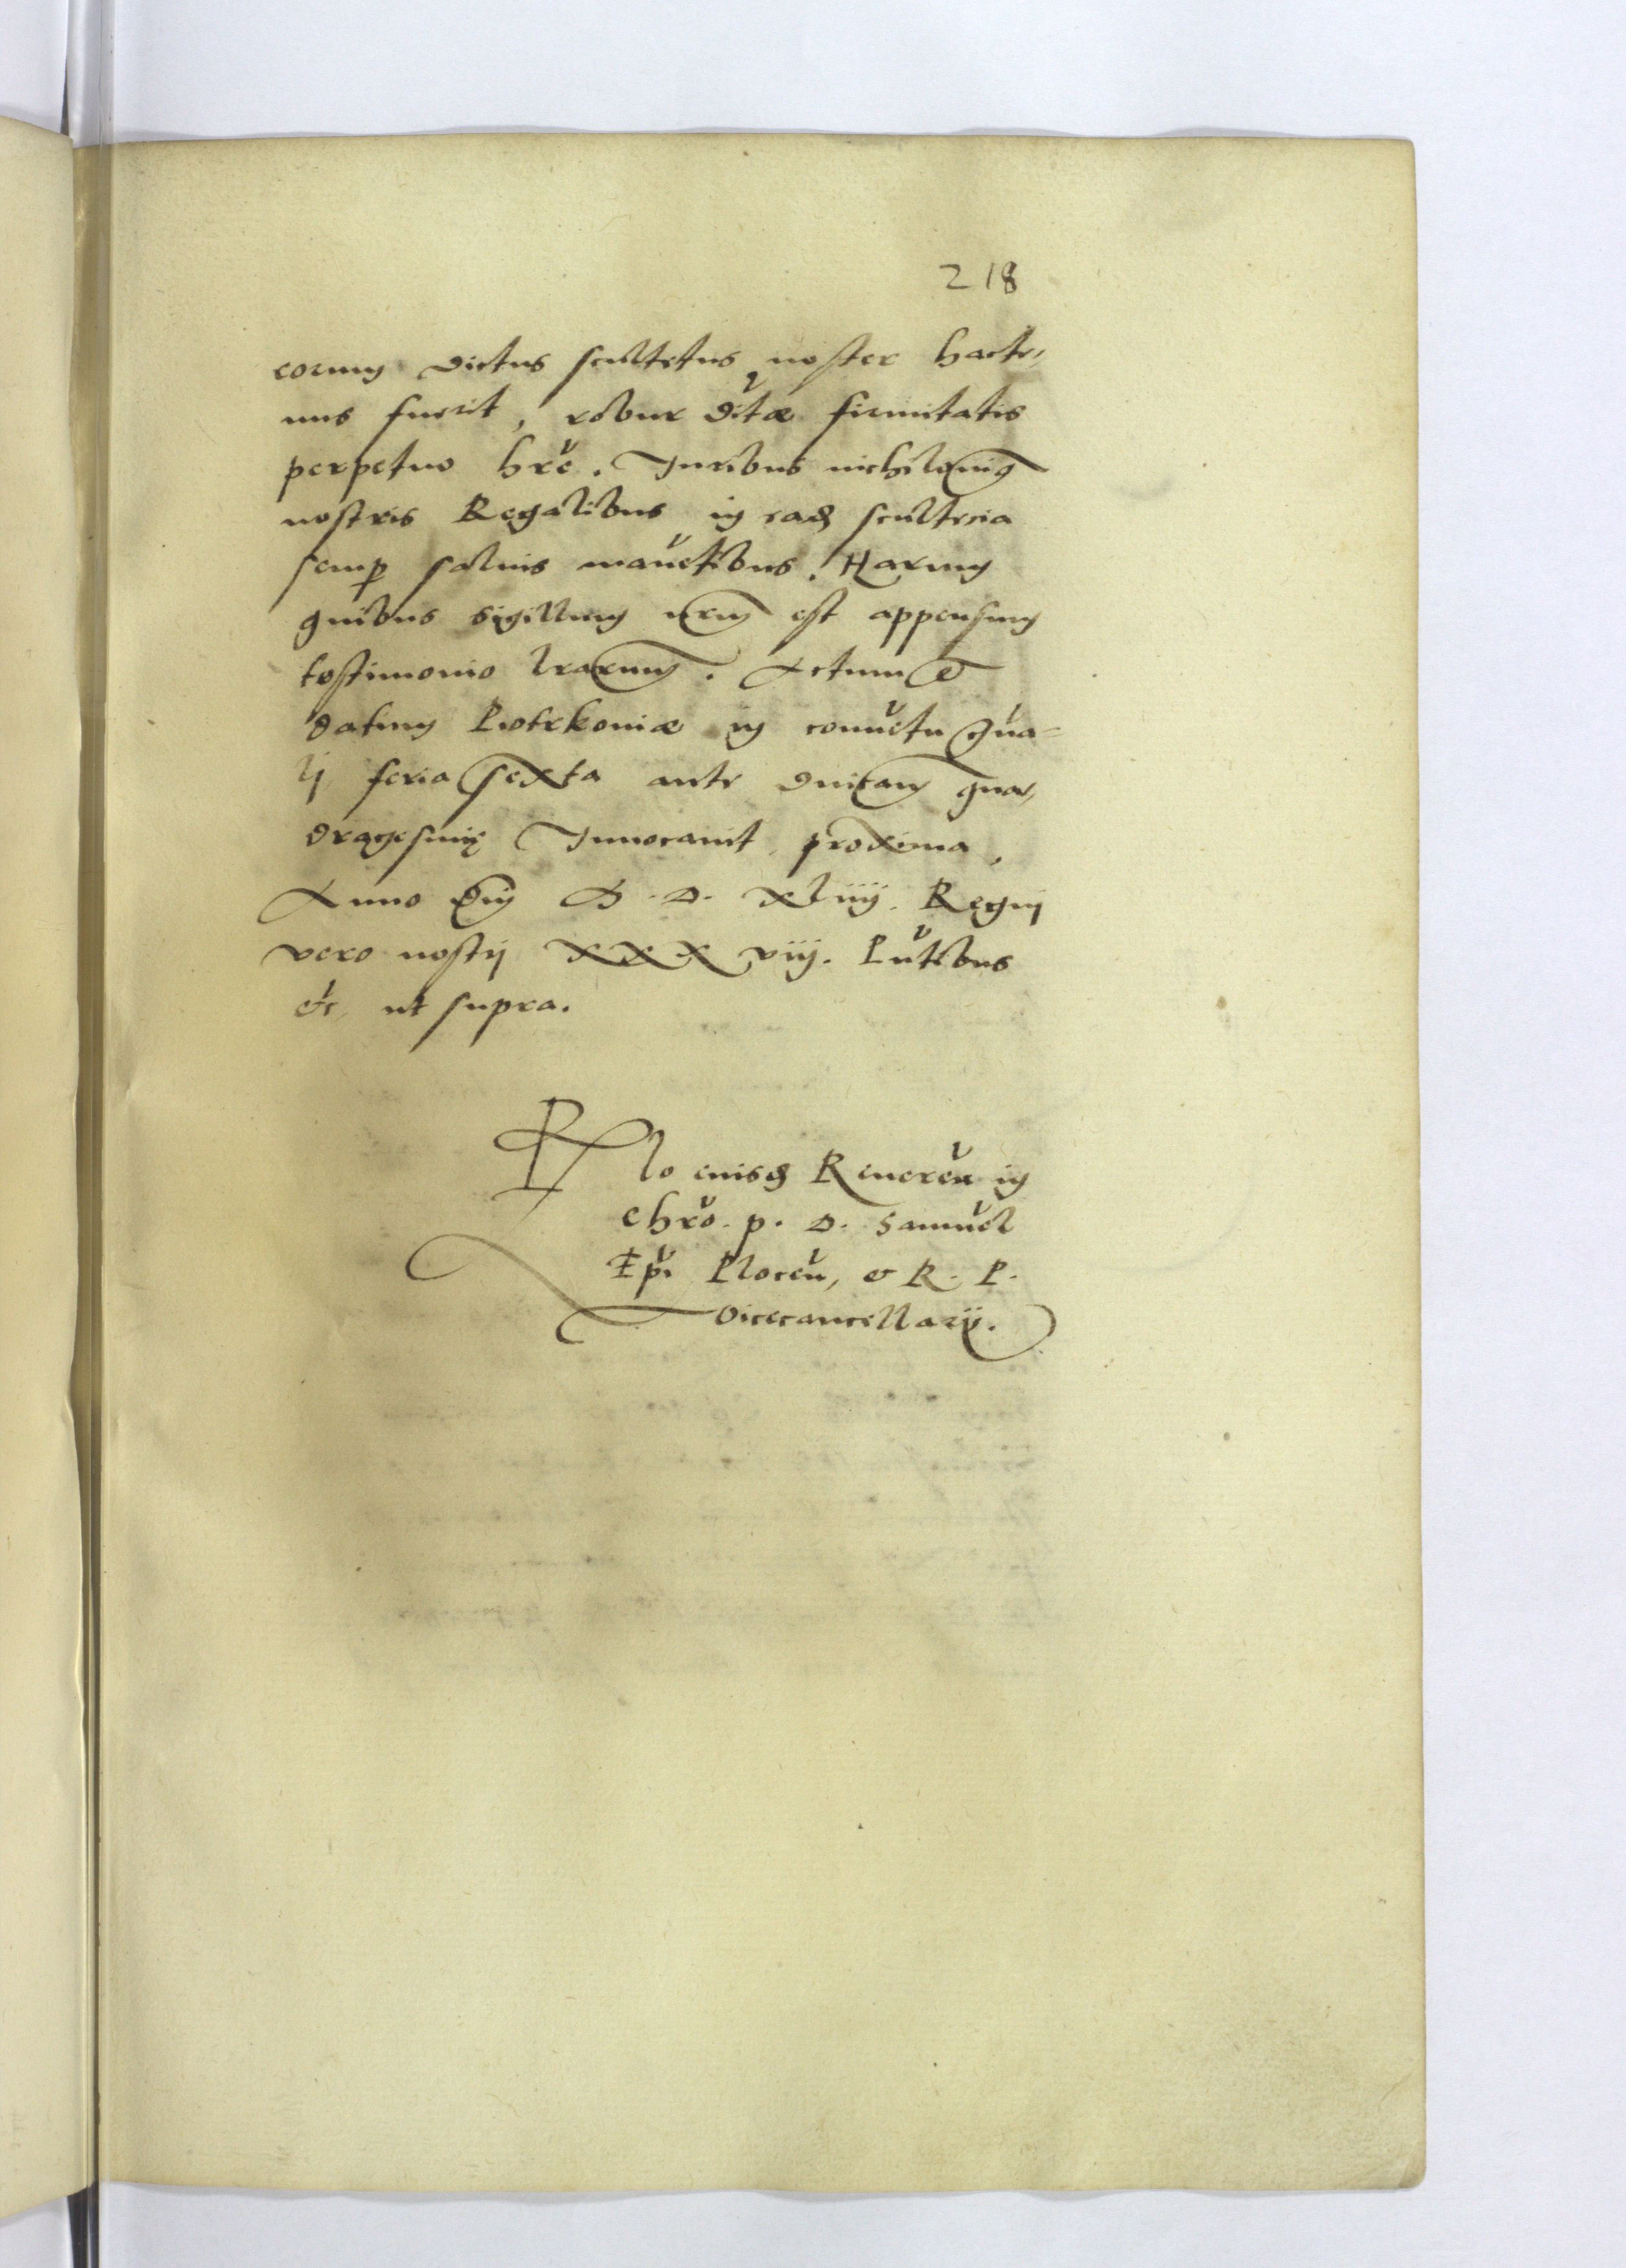 218
eorum dictus scultetus noster hacte,
nus fuerit, robur ditæ firmitatis
perpetuo hre. Iuribus nichilominus
nostris Regalibus in eadem scultecia
semp salvis manentibus. Harum
quibus sigillum nrm est appensum
testimonio lrarum. Actum et
datum Piotrkoniæ in conuentu gna=
lj feria sexta ante dnicam qua,
dragesimę Inuocauit proxima,
Anno Dni M. D. xliiij. Regni
vero nostrj XXX viij. Pntibus
etc, ut supra.
Rlo eiusdem Reueren in
chro. p. D. Samuel
Epi Plocen, et R. P.
Vicecancellarij.